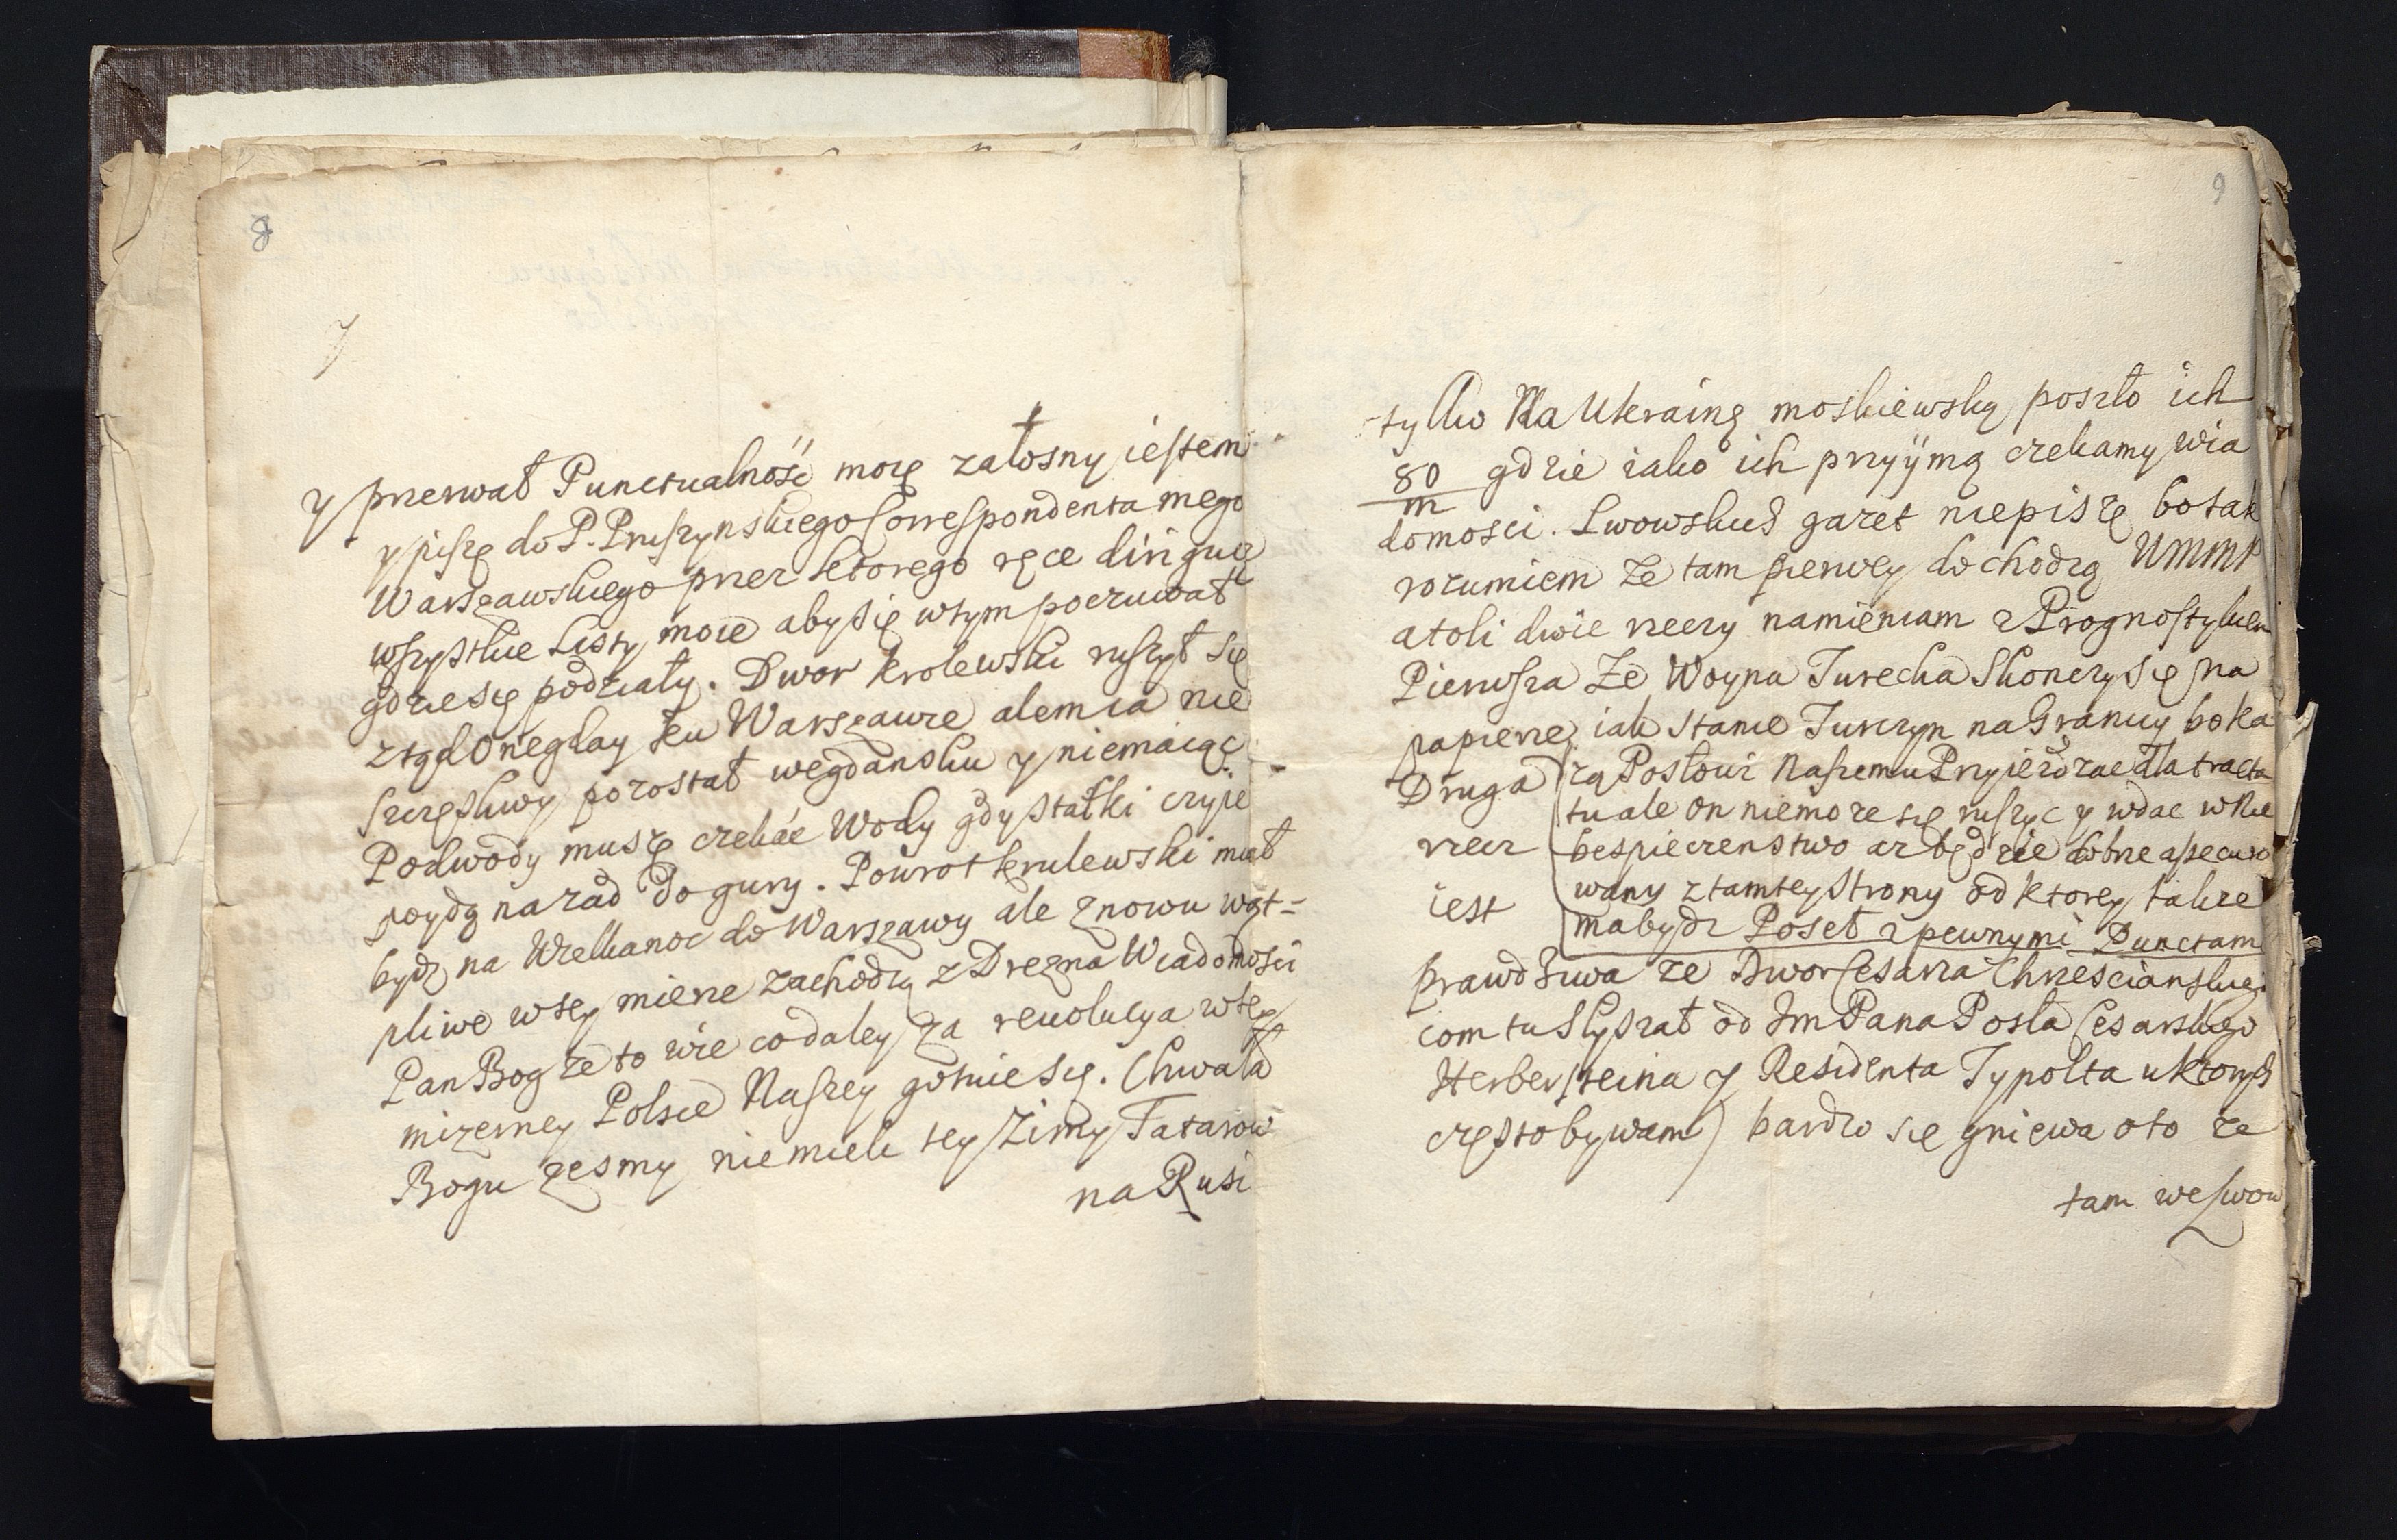 8
y
y przerwał Punctualność moię załosny iestem
y piszę do P. Pruszynskiego Correspondenta mego
Warszawskiego przez ktorego ręce diriguię
wszystkie Listy moie aby się wtym poczuwał
gdzie się podziały. Dwor krolewski ruszył się
ztąd Onegday ku Warszawie alem ia nie
szczęsliwy pozostał wegdansku y niemaiąc
Podwody muszę czekáć Wody gdy statki czyie
poydą nazad do gury. Powrot krulewski miał
bydz na Wielkanoc do Warszawy ale znowu wąt=
pliwe wtey mierze zachodzą z Drezna Wiadomosci
Pan Bog ze to wie co daley za rewolucya wtey
mizerney Polsce Naszey gotuie się. Chwała
Bogu zesmy niemieli tey Zimy Tatarow
na Rusi
9
tylko Na Ukrainę moskiewską poszło ich
80/m gdzie iako ich przyymą czekamy wia
domosci. Lwowskich gazet niepiszę bo tak
rozumiem ze tam pierwey dochodzą UMMP
atoli dwie rzeczy namieniam z Prognostykiem
Pierwsza Ze Woyna Turecka Skonczy się na
papierze iak stanie Turczyn na Granicy bo ka
Druga zą Posłowi Naszemu Przyiezdzac dla tracta
tu ale on niemoze się ruszyc y wdac w Nie
rzecz bespieczenstwo az będzie dobrze assecuro
wany ztamtey strony od ktorey takze
iest ma bydz Poseł z pewnymi Punctam
prawdziwa ze Dwor Cesarza Chrzescianskieg
com tu Slyszał od Jm Pana Posła Cesarskiego
Herbersteina y Residenta Typolta u ktorych
często bywam) bardzo się gniewa oto ze
tam we Lwow